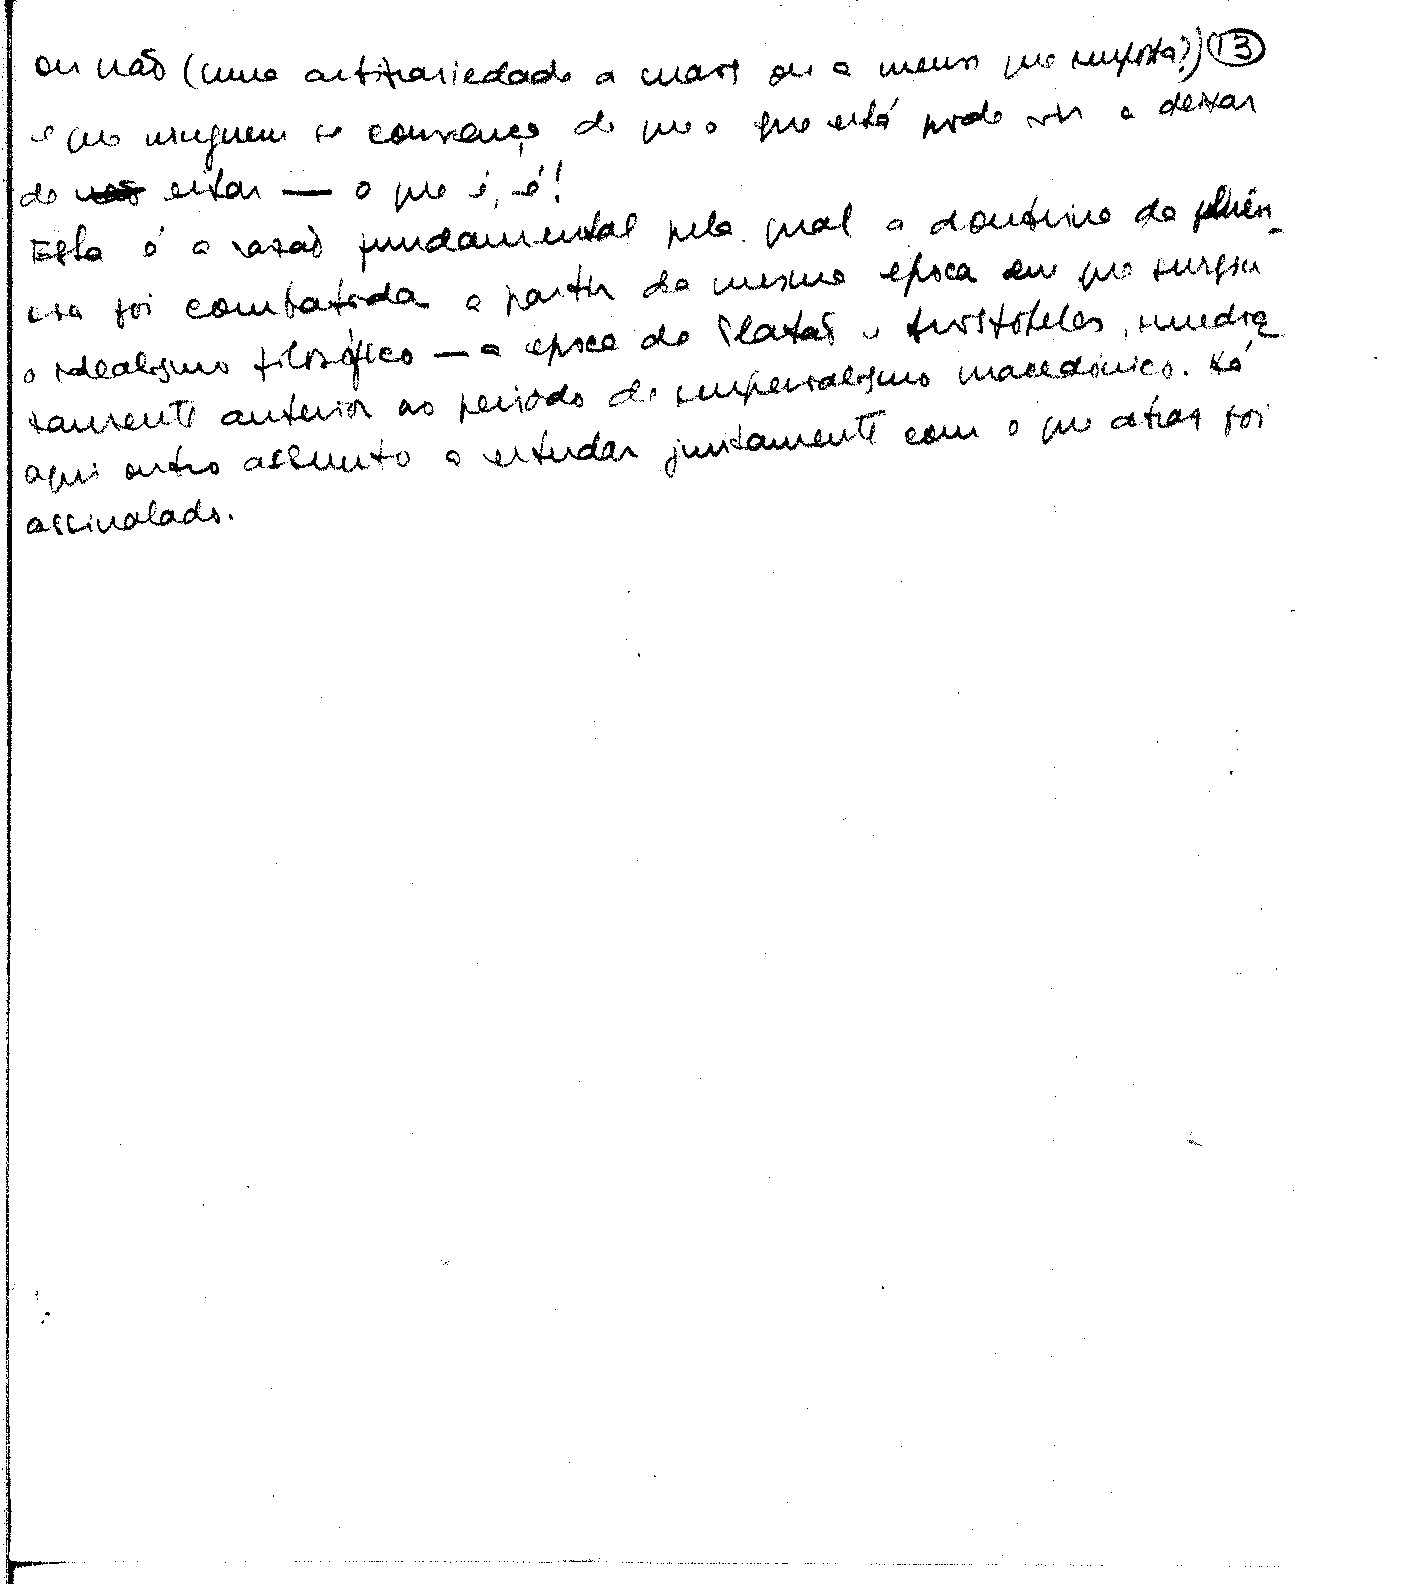 ou não (uma arbitrariedade a mais ou a menos que importa?) 13
e que ninguem se convença de que o que está pode vir a deixar
de estar — o que é, é!
Esta é a razão fundamental pela qual a doutrina de
foi combatida a partir da mesma época em que surgiu
o idealismo filosófico — a epoca de Platão e Aristóteles, imedia
tamente anterior ao período do imperialismo macedónico. Há
aqui outro assunto a estudar juntamente com o que atras foi
assinalado.